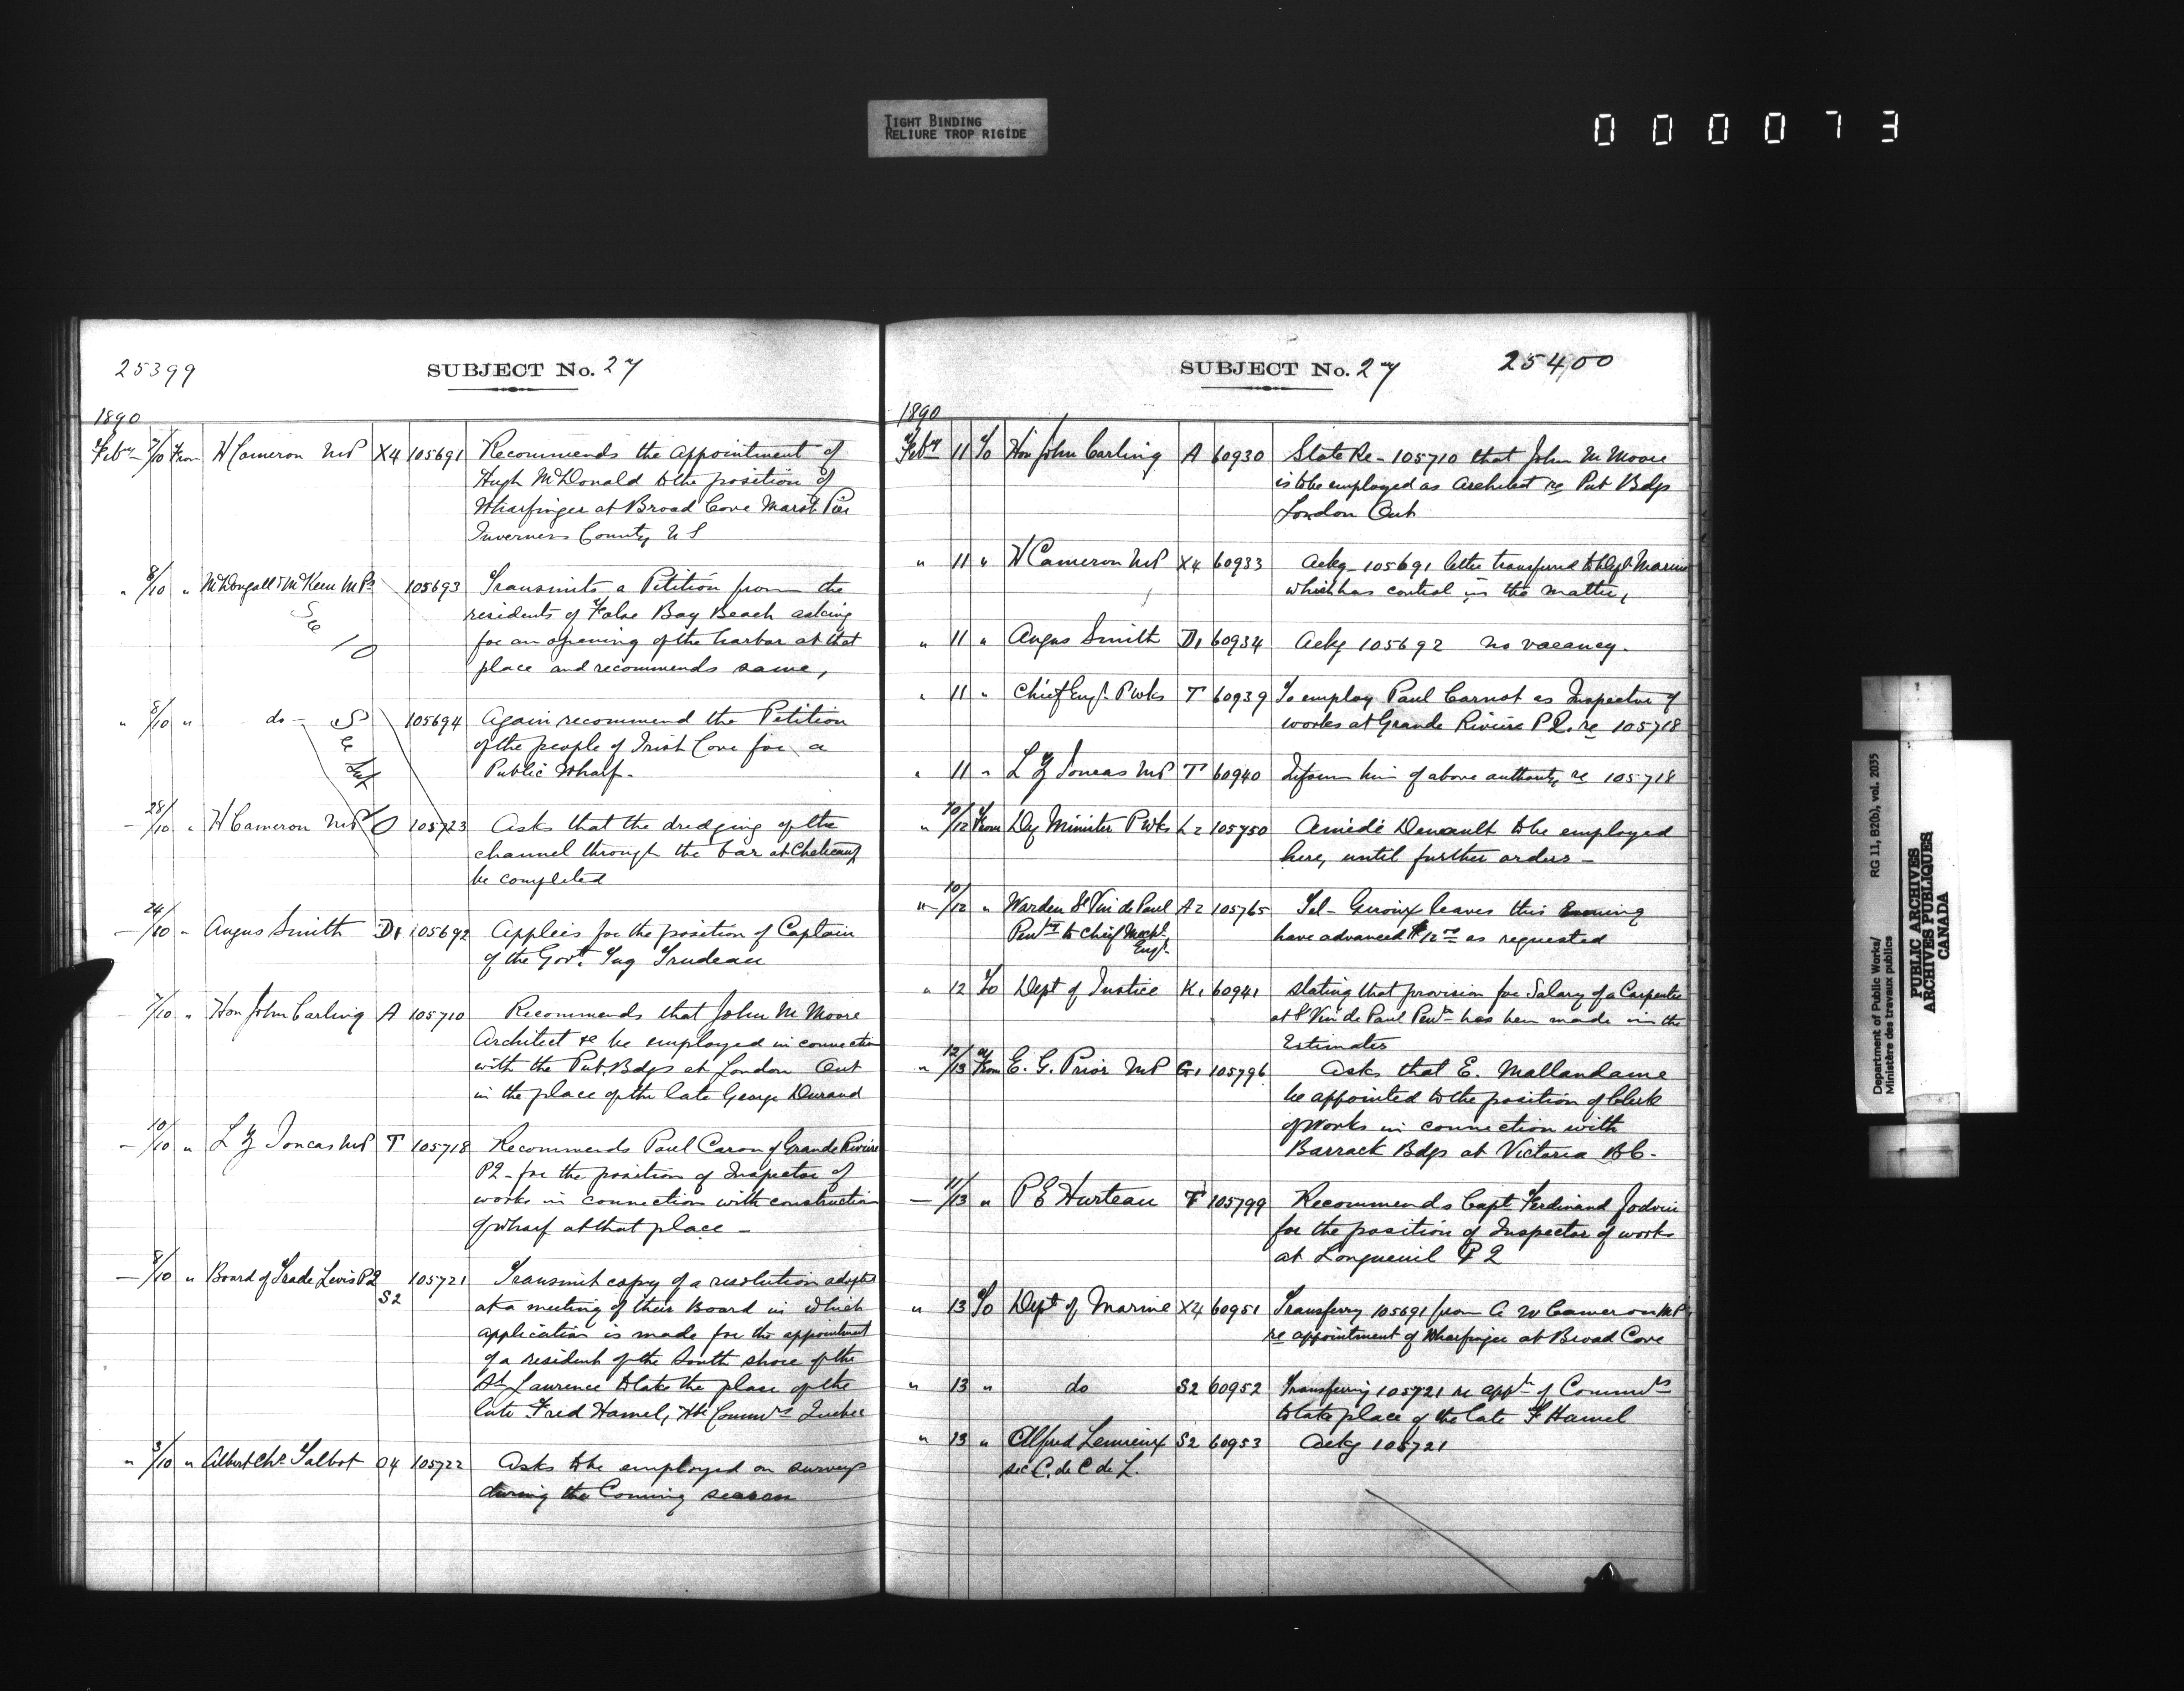 TIGHT BINDING
RELIURE TROP RIGIDE
0 0 0 0 7 3
25399
SUBJECT No. 27
1890
Feby 7/10 From H Cameron MP X4 105691 Recommends the appointment of
Hugh McDonald to the position of
Wharfinger at Broad Cove Marsh Pier
Inverness County N S
" 8/10 " McDougall & McKeen MPs 105693 Transmits a Petition from the
residents of False Bay Beach asking
for an opening of the harbor at that
place and recommends same,
See 10
" 8/10 " do - 105694 Again recommend the Petition
of the people of Irish Cove for a
Public Wharf -
See
- 28/10 " H Cameron MP 105723 Asks that the dredging of the
channel through the bar at
be completed
- 24/10 " Angus Smith D1 105692 Appleis for the position of Captain
of the Govt. Tug Trudeau
- 7/10 " Hon John Carling A 105710 Recommends that John M Moore
Architect &c be employed in connection
with the Pub. Bdgs at London Ont
in the place of the late George Durand
- 10/10 " L Z Joncas MP T 105718 Recommends Paul Caron of Grande Riviere
PQ - for the position of Inspector of
works in connection with construction
of wharf at that place -
- 8/10 " Board of Trade Levis PQ S2 105721 Transmit copy of a resolution adopted
at a meeting of their Board in which
application is made for the appointment
of a resident of the South shore of the
St Lawrence to take the place of the
late Fred Hamel, Hbr Commrs Quebec
" 3/10 " Albert Chs Talbot O4 105722 Asks to be employed on surveys
during the Coming season
SUBJECT No. 27
25400
1890
Feby 11 To Hon John Carling A 60930 State Re - 105710 that John M Moore
is to be employed as Architect re Pub Bdgs
London Ont
" 11 " H Cameron MP X4 60933 Ackg 105691 letter transferred to Dept Marine
which has control in the matter,
" 11 " Angus Smith D1 60934 Ackg 105692 no vacancy.
" 11 " Chief Engr. Pwks T 60939 To employ Paul Carnot as Inspector of
works at Grande Riviere P Q. re 105718
" 11 " L Z Joncas MP T 60940 Inform him of above authority re 105718
" 10/12 From Dy Minister Pwks L2 105750 Amédé Denault to be employed
here, until further orders -
" 10/12 " Warden St Vin de Paul A2 105765 Tel - Giroux leaves this Evening
Penty to Chief Mechl. Engr. have advanced $12 00 as requested
" 12 To Dept of Justice K1 60941 stating that provision for Salary of a Carpenter
at St Vin de Paul Penty has been made in the
Estimates
" 12/13 From E. G. Prior MP G1 105796 Asks that E. Mallandaine
be appointed to the position of Clerk
of Works in connection with
Barrack Bdgs at Victoria B C -
- 11/13 " P E Hurteau T 105799 Recommends Capt Ferdinand Jodoin
for the position of Inspector of works
at Longueuil P Q
" 13 To Dept of Marine X4 60951 Transferrg 105691 from Cameron MP
re appointment of Wharfinger at Broad Cove
" 13 " do S2 60952 Transferring 105721 re appt of Commrs
to take place of the late F Hamel
" 13 " Alfred Lemieux S2 60953 Ackg 105721
sec C. de C de L.
Department of Public Works/ RG 11, B2(b), vol. 2035
Ministère des travaux publics
PUBLIC ARCHIVES
ARCHIVES PUBLIQUES
CANADA